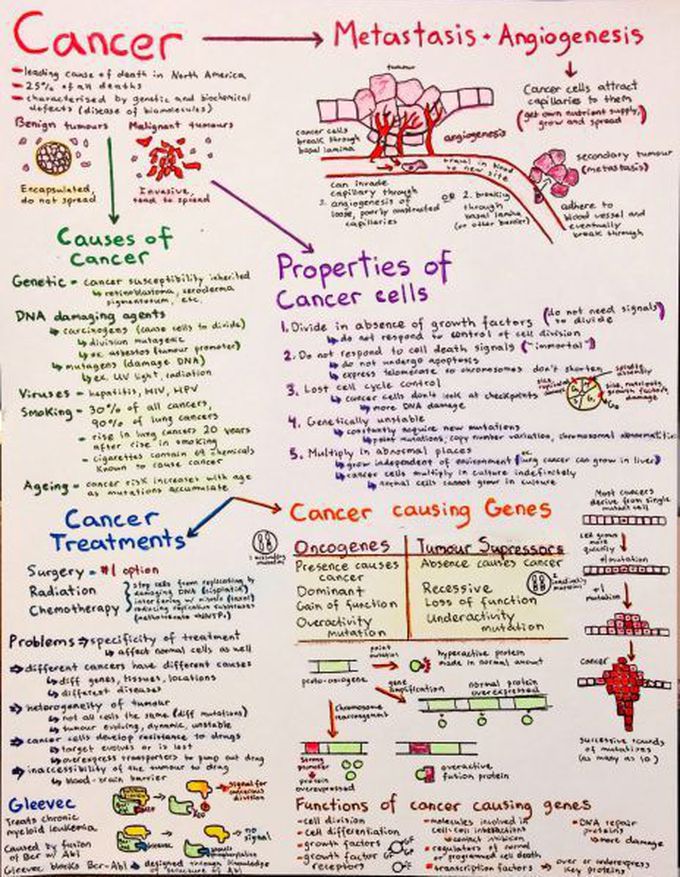 Cancer → Metastasis + Angiogenesis
- leading cause of death in North America
- 25% of all deaths
- characterised by genetic and biochemical
defects (disease of biomolecules)
Benign tumours
Malignant tumours
Encapsulated,
do not spread
Invasive,
tend to spread
tumour
cancer cells
break through
basal lamina
angiogenesis
travel in blood
to new site
can invade
capillary through
angiogenesis of
loose, poorly constructed
capillaries
OR 2. breaking
through
basal lamina
(or other barrier)
Cancer cells attract
capillaries to them
(get own nutrient supply,
grow and spread)
secondary tumour
(metastasis)
adhere to
blood vessel and
eventually
break through
Causes of
Cancer
Genetic - cancer susceptibility inherited
↳ retinoblastoma, xeroderma
pigmentosum, etc.
DNA damaging agents
↳ carcinogens (cause cells to divide)
↳ division mutagenic
↳ ex. asbestos (tumour promoter)
↳ mutagens (damage DNA)
↳ ex. UV light, radiation
Viruses - hepatitis, HIV, HPV
Smoking - 30% of all cancers,
90% of lung cancers
- rise in lung cancers 20 years
after rise in smoking
- cigarettes contain 69 chemicals
known to cause cancer
Ageing - cancer risk increases with age
as mutations accumulate
Properties of
Cancer cells
1. Divide in absence of growth factors (do not need signals to divide)
↳ do not respond to control of cell division
2. Do not respond to cell death signals ("immortal")
↳ do not undergo apoptosis
↳ express telomerase so chromosomes don't shorten
3. Lost cell cycle control
↳ cancer cells don't look at checkpoints
↳ more DNA damage
spindle
assembly
size, nutrients,
growth factors,
damage
G₀
4. Genetically unstable
↳ constantly acquire new mutations
↳ point mutations, copy number variation, chromosomal
5. Multiply in abnormal places
↳ grow independent of environment (ex. lung cancer can grow in liver)
↳ cancer cells multiply in culture indefinitely
↳ normal cells cannot grow in culture
Cancer
Treatments
Surgery - #1 option
Radiation
Chemotherapy
stop cells from replicating by
damaging DNA (cisplatin)
interfering w mitosis (taxol)
reducing replication substrates
Problems → specificity of treatment
↳ affect normal cells as well
⇒ different cancers have different causes
↳ diff genes, tissues, locations
↳ different diseases
⇒ heterogeneity of tumour
↳ not all cells the same (diff mutations)
↳ tumour evolving, dynamic, unstable
⇒ cancer cells develop resistance to drugs
↳ target evolves or is lost
↳ overexpress transporters to pump out drug
⇒ inaccessibility of the tumour to drug
↳ blood-brain barrier
Gleevec
Treats chronic
myeloid leukemia
Caused by fusion
of Bcr w Abl
Gleevec blocks Bcr-Abl
↳ designed through knowledge
of structure of Abl
signal for
cancerous
division
no
signal
Cancer causing Genes
Oncogenes
Tumour Supressors
Presence causes
cancer
Absence causes cancer
Dominant
Recessive
Gain of function
Loss of function
Overactivity
mutation
Underactivity
mutation
proto-oncogene
point
mutation
hyperactive protein
made in normal amount
gene
amplification
normal protein
overexpressed
chromosome
rearrangement
strong
promoter
protein
overexpressed
overactive
fusion protein
Most cancers
derive from single
mutant cell
cell grows
more
quickly
+1 mutation
+1
mutation
cancer
successive rounds
of mutations
(as many as 10)
Functions of cancer causing genes
- cell division
- cell differentiation
- growth factors
- growth factor
receptors
- molecules involved in
cell-cell interactions
↳ contact inhibition
- regulators of normal
or programmed cell death
- transcription factors → over or underexpress
key proteins
- DNA repair
proteins
↳ more damage